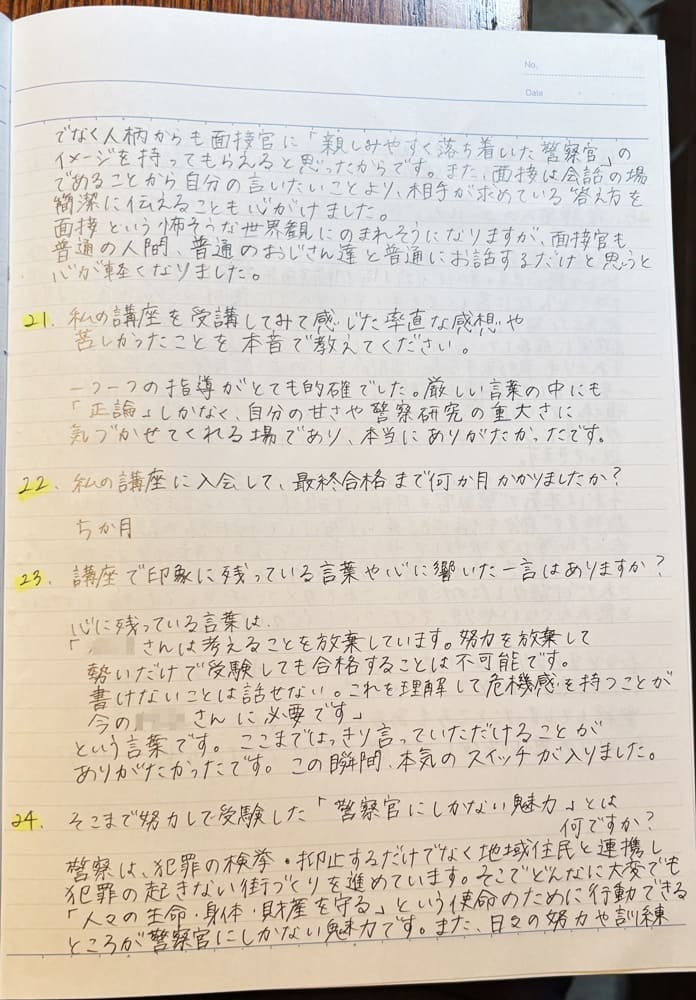 No.
Date
でなく人柄からも面接官に「親しみやすく落ち着いた警察官」の
イメージを持ってもらえると思ったからです。また、面接は会話の場
であることから自分の言いたいことより、相手が求めている答え方を
簡潔に伝えることも心がけました。
面接という怖そうな世界観にのまれそうになりますが、面接官も
普通の人間、普通のおじさん達と普通にお話するだけと思うと
心が軽くなりました。
21. 私の講座を受講してみて感じた率直な感想や
苦しかったことを本音で教えてください。
一つ一つの指導がとても的確でした。厳しい言葉の中にも
「正論」しかなく、自分の甘さや警察研究の重大さに
気づかせてくれる場であり、本当にありがたかったです。
22. 私の講座に入会して、最終合格まで何か月かかりましたか?
5か月
23. 講座で印象に残っている言葉や心に響いた一言はありますか?
心に残っている言葉は、
「 さんは考えることを放棄しています。努力を放棄して
勢いだけで受験しても合格することは不可能です。
書けないことは話せない。これを理解して危機感を持つことが
今の さんに必要です」
という言葉です。ここまではっきり言っていただけることが
ありがたかったです。この瞬間、本気のスイッチが入りました。
24. そこまで努力して受験した「警察官にしかない魅力」とは
何ですか?
警察は、犯罪の検挙・抑止するだけでなく地域住民と連携し
犯罪の起きない街づくりを進めています。そこでどんなに大変でも
「人々の生命・身体・財産を守る」という使命のために行動できる
ところが警察官にしかない魅力です。また、日々の努力や訓練